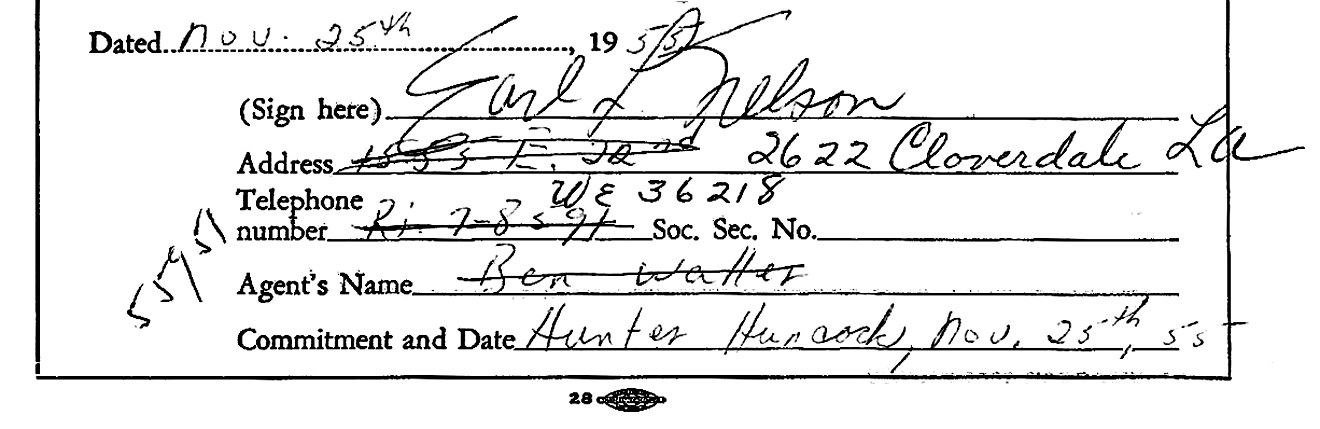 Dated Nov. 25th, 19 55
(Sign here) Earl L Nelson
Address 1535 E. 22nd 2622 Cloverdale La
Telephone WE 36218
number Ri. 7-8591 Soc. Sec. No.
Agent's Name Ben Waller
Commitment and Date Hunter Huncock, Nov. 25th, 55
28